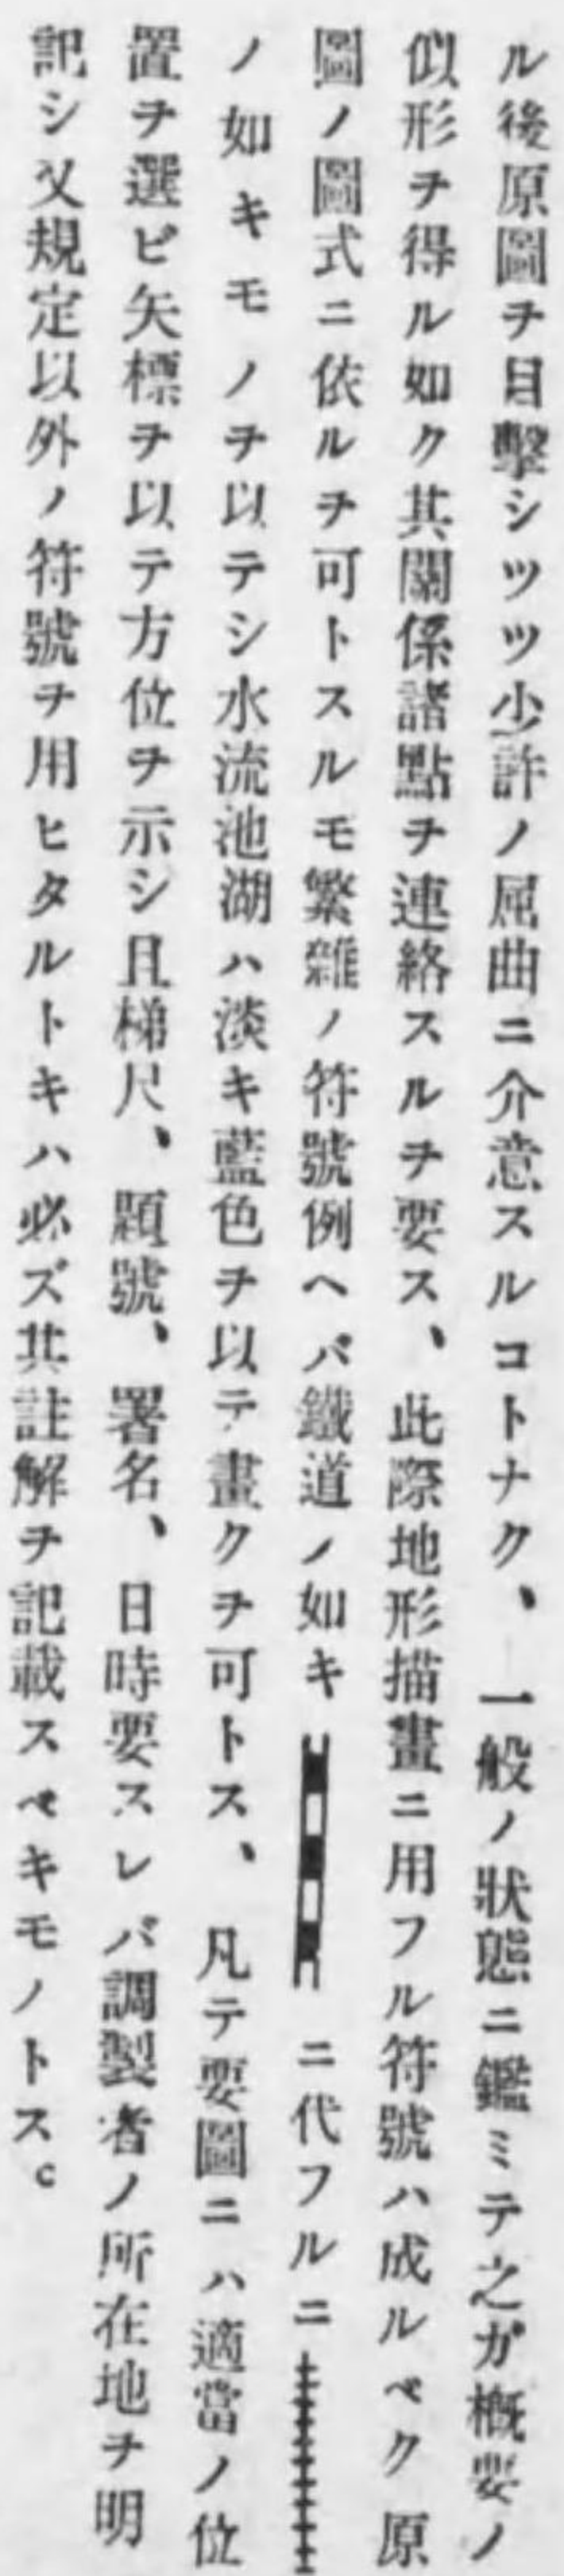 ル後原圖ヲ目擊シツツ少許ノ屈曲ニ介意スルコトナク、一般ノ狀態ニ鑑ミテ之ガ槪要ノ
似形ヲ得ル如ク其關係諸點ヲ連絡スルヲ要ス、此際地形描畫ニ用フル符號ハ成ルベク原
圖ノ圖式ニ依ルヲ可トスルモ繁雜ノ符號例ヘバ鐵道ノ如キ ニ代フルニ
ノ如キモノヲ以テシ水流池湖ハ淡キ藍色ヲ以テ畫クヲ可トス、凡テ要圖ニハ適當ノ位
置ヲ選ビ矢標ヲ以テ方位ヲ示シ且梯尺、題號、署名、日時要スレバ調製者ノ所在地ヲ明
記シ又規定以外ノ符號ヲ用ヒタルトキハ必ズ其註解ヲ記載スベキモノトス。